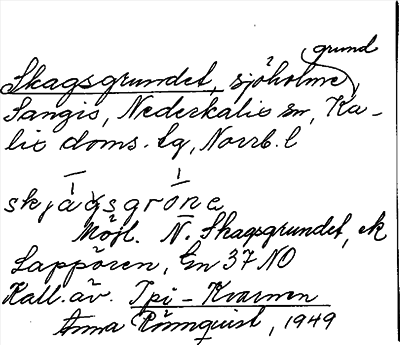 grund
Skagsgrundet, sjöholme,
Sangis, Nederkalix sn, Ka-
lix doms. tg, Norrb. l
skjagsgröne
Möjl. N. Skagsgrundet, ek
Lappören, Gn 37 NO
Kall. äv. Tpi-Kvarnen
Anna Rönnquist, 1949